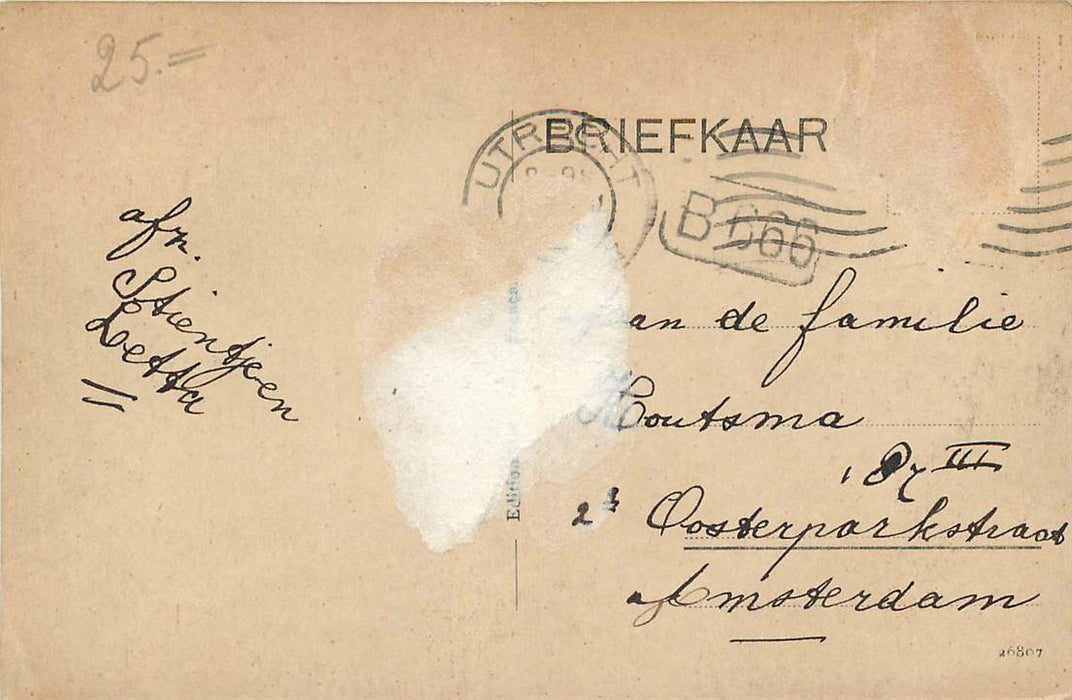 25.=
BRIEFKAAR
UTRECHT
B 666
afz.
Stientjeen
Zetta
aan de familie
Houtsma
187 III
2e Oosterparkstraat
Amsterdam
Edition
França
26807